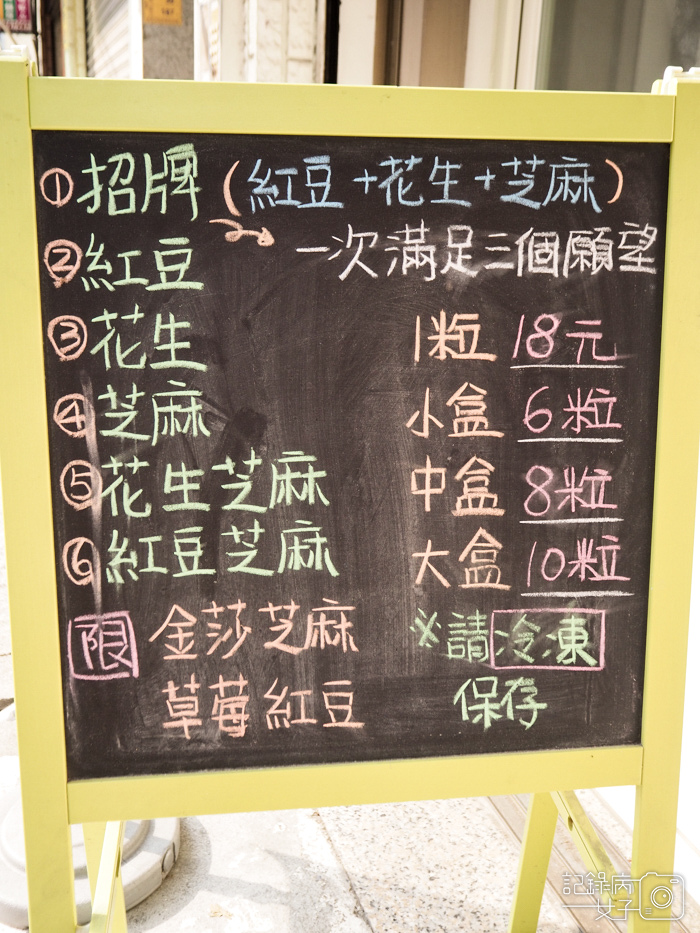 ①招牌(紅豆+花生+芝麻)
一次滿足三個願望
②紅豆
③花生
④芝麻
⑤花生芝麻
⑥紅豆芝麻
限 金莎芝麻
草莓紅豆
1粒 18元
小盒 6粒
中盒 8粒
大盒 10粒
※請冷凍
保存
記錄丙女子